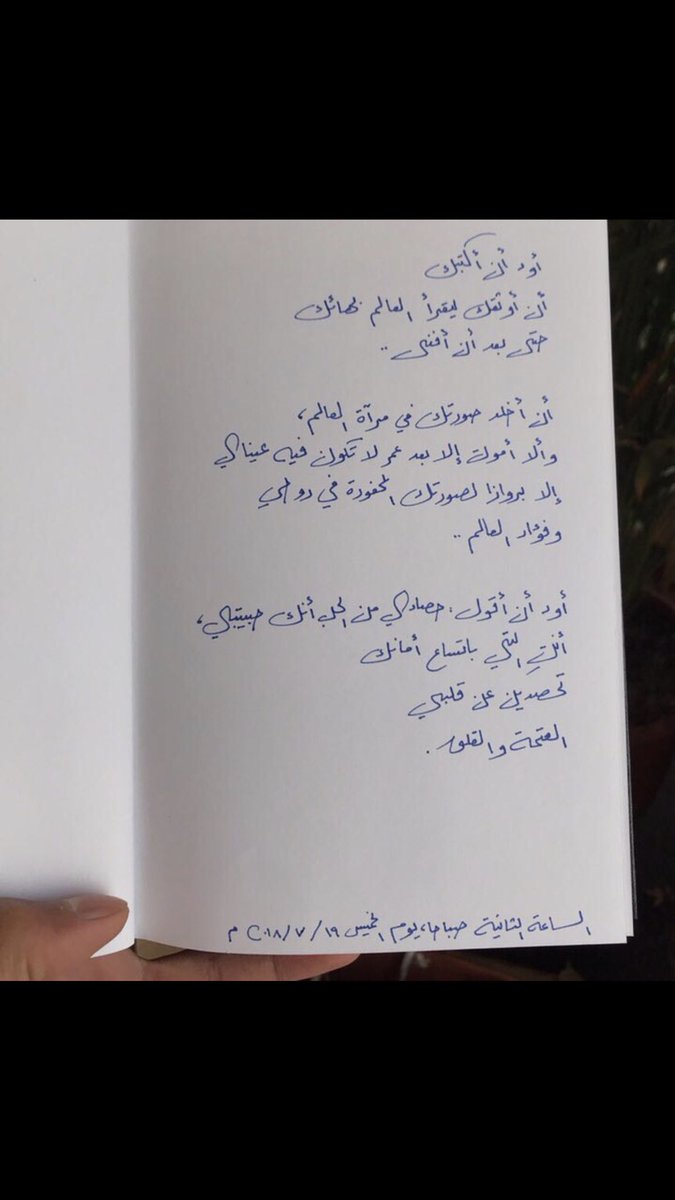 أود أن أكتبك
أن أوثقك ليقرأ العالم بهائك
حتى بعد أن أفنى ..
أن أخلد صورتك في مرآة العالم،
وألا أموت إلا بعد عمر لا تكون فيه عيناي
إلا بروازا لصورتك المحفورة في روحي
وفؤاد العالم ..
أود أن أقول: حصادي من الحب أنك حبيبتي،
أنتِ التي باتساع أمانك
تحصدين عن قلبي
العتمة والقلق.
الساعة الثانية صباحا، يوم الخميس ١٩/٧/٢٠١٨ م